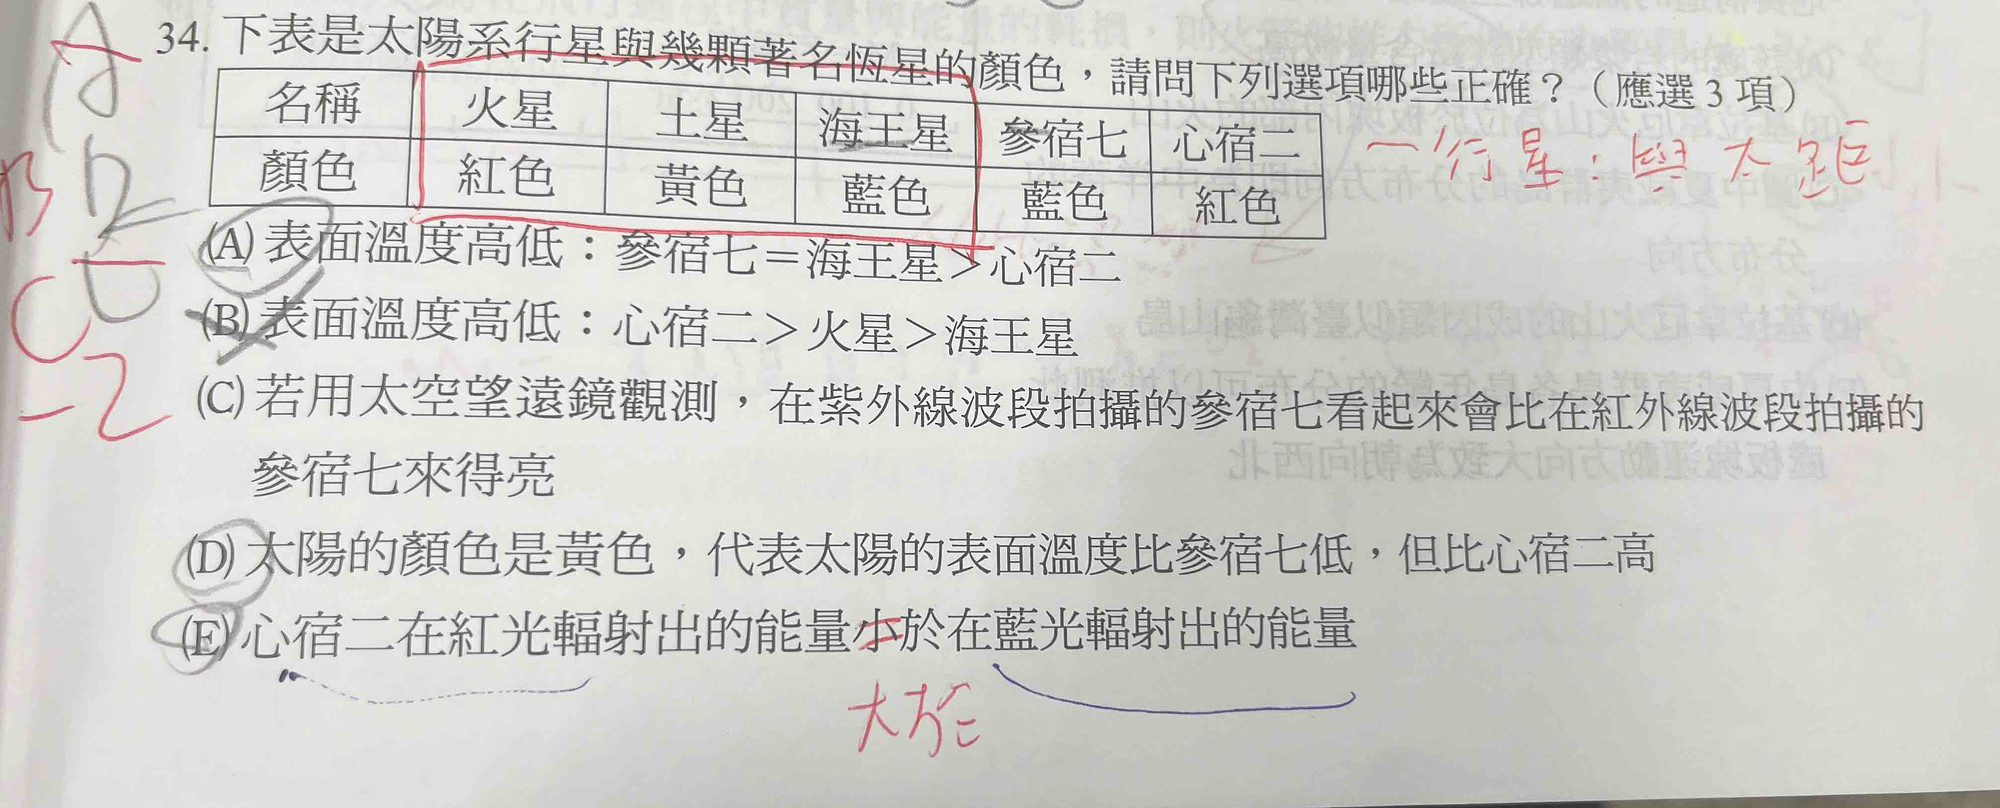 34. 下表是太陽系行星與幾顆著名恆星的顏色，請問下列選項哪些正確？（應選 3 項）
名稱 火星 土星 海王星 參宿七 心宿二
顏色 紅色 黃色 藍色 藍色 紅色
行星：與太距
(A) 表面溫度高低：參宿七＝海王星＞心宿二
(B) 表面溫度高低：心宿二＞火星＞海王星
(C) 若用太空望遠鏡觀測，在紫外線波段拍攝的參宿七看起來會比在紅外線波段拍攝的
參宿七來得亮
(D) 太陽的顏色是黃色，代表太陽的表面溫度比參宿七低，但比心宿二高
(E) 心宿二在紅光輻射出的能量小於在藍光輻射出的能量
大於
A
B D
E
C
-2